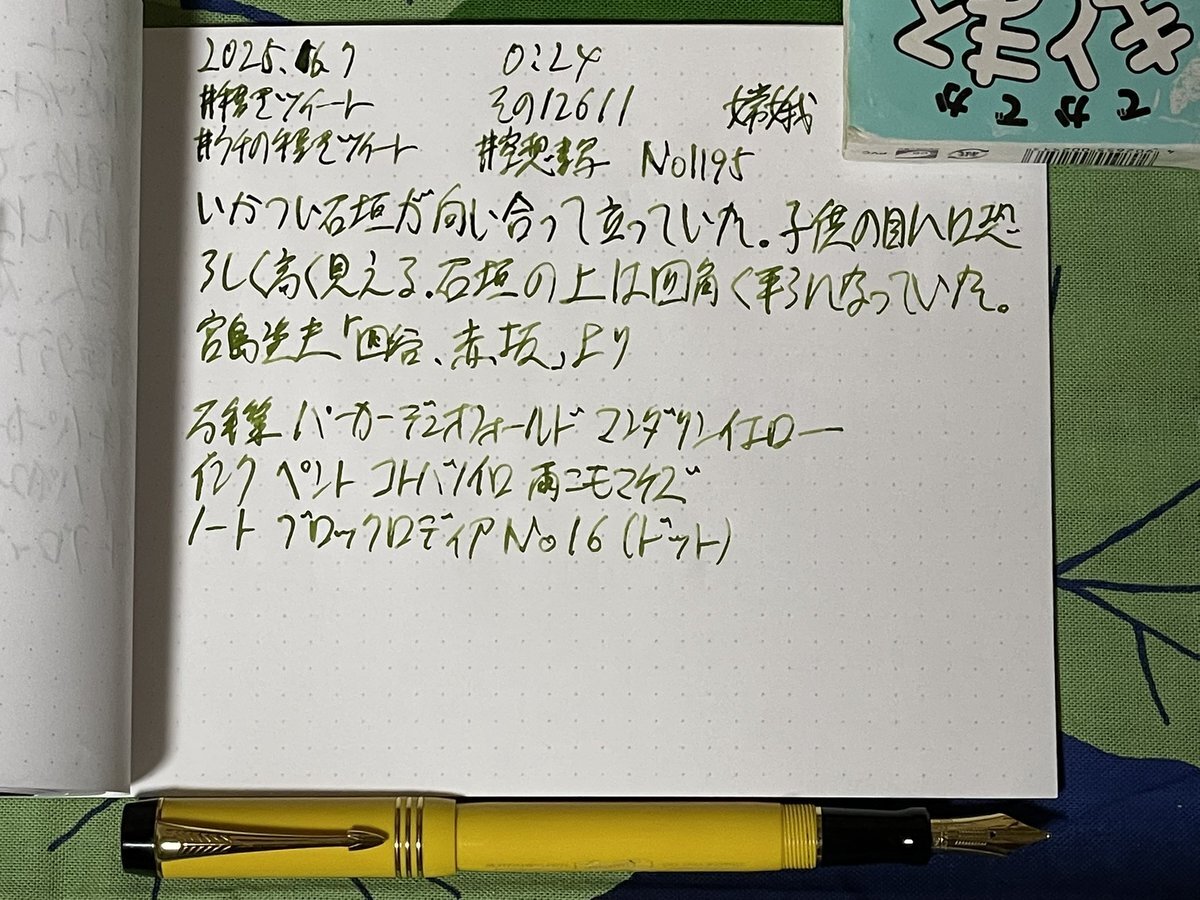 2025.6.7 0:24
#手書きツイート その12611 嫦娥
#ウチの手書きツイート #空想書写 No1195
いかつい石垣が向い合って立っていた。子供の目には恐
ろしく高く見える。石垣の上は四角く平らになっていた。
宮島達夫「四谷、赤坂」より
万年筆 パーカーデュオフォールド マンダリンイエロー
インク ペント コトバノイロ 雨ニモマケズ
ノート ブロックロディアNo16(ドット)